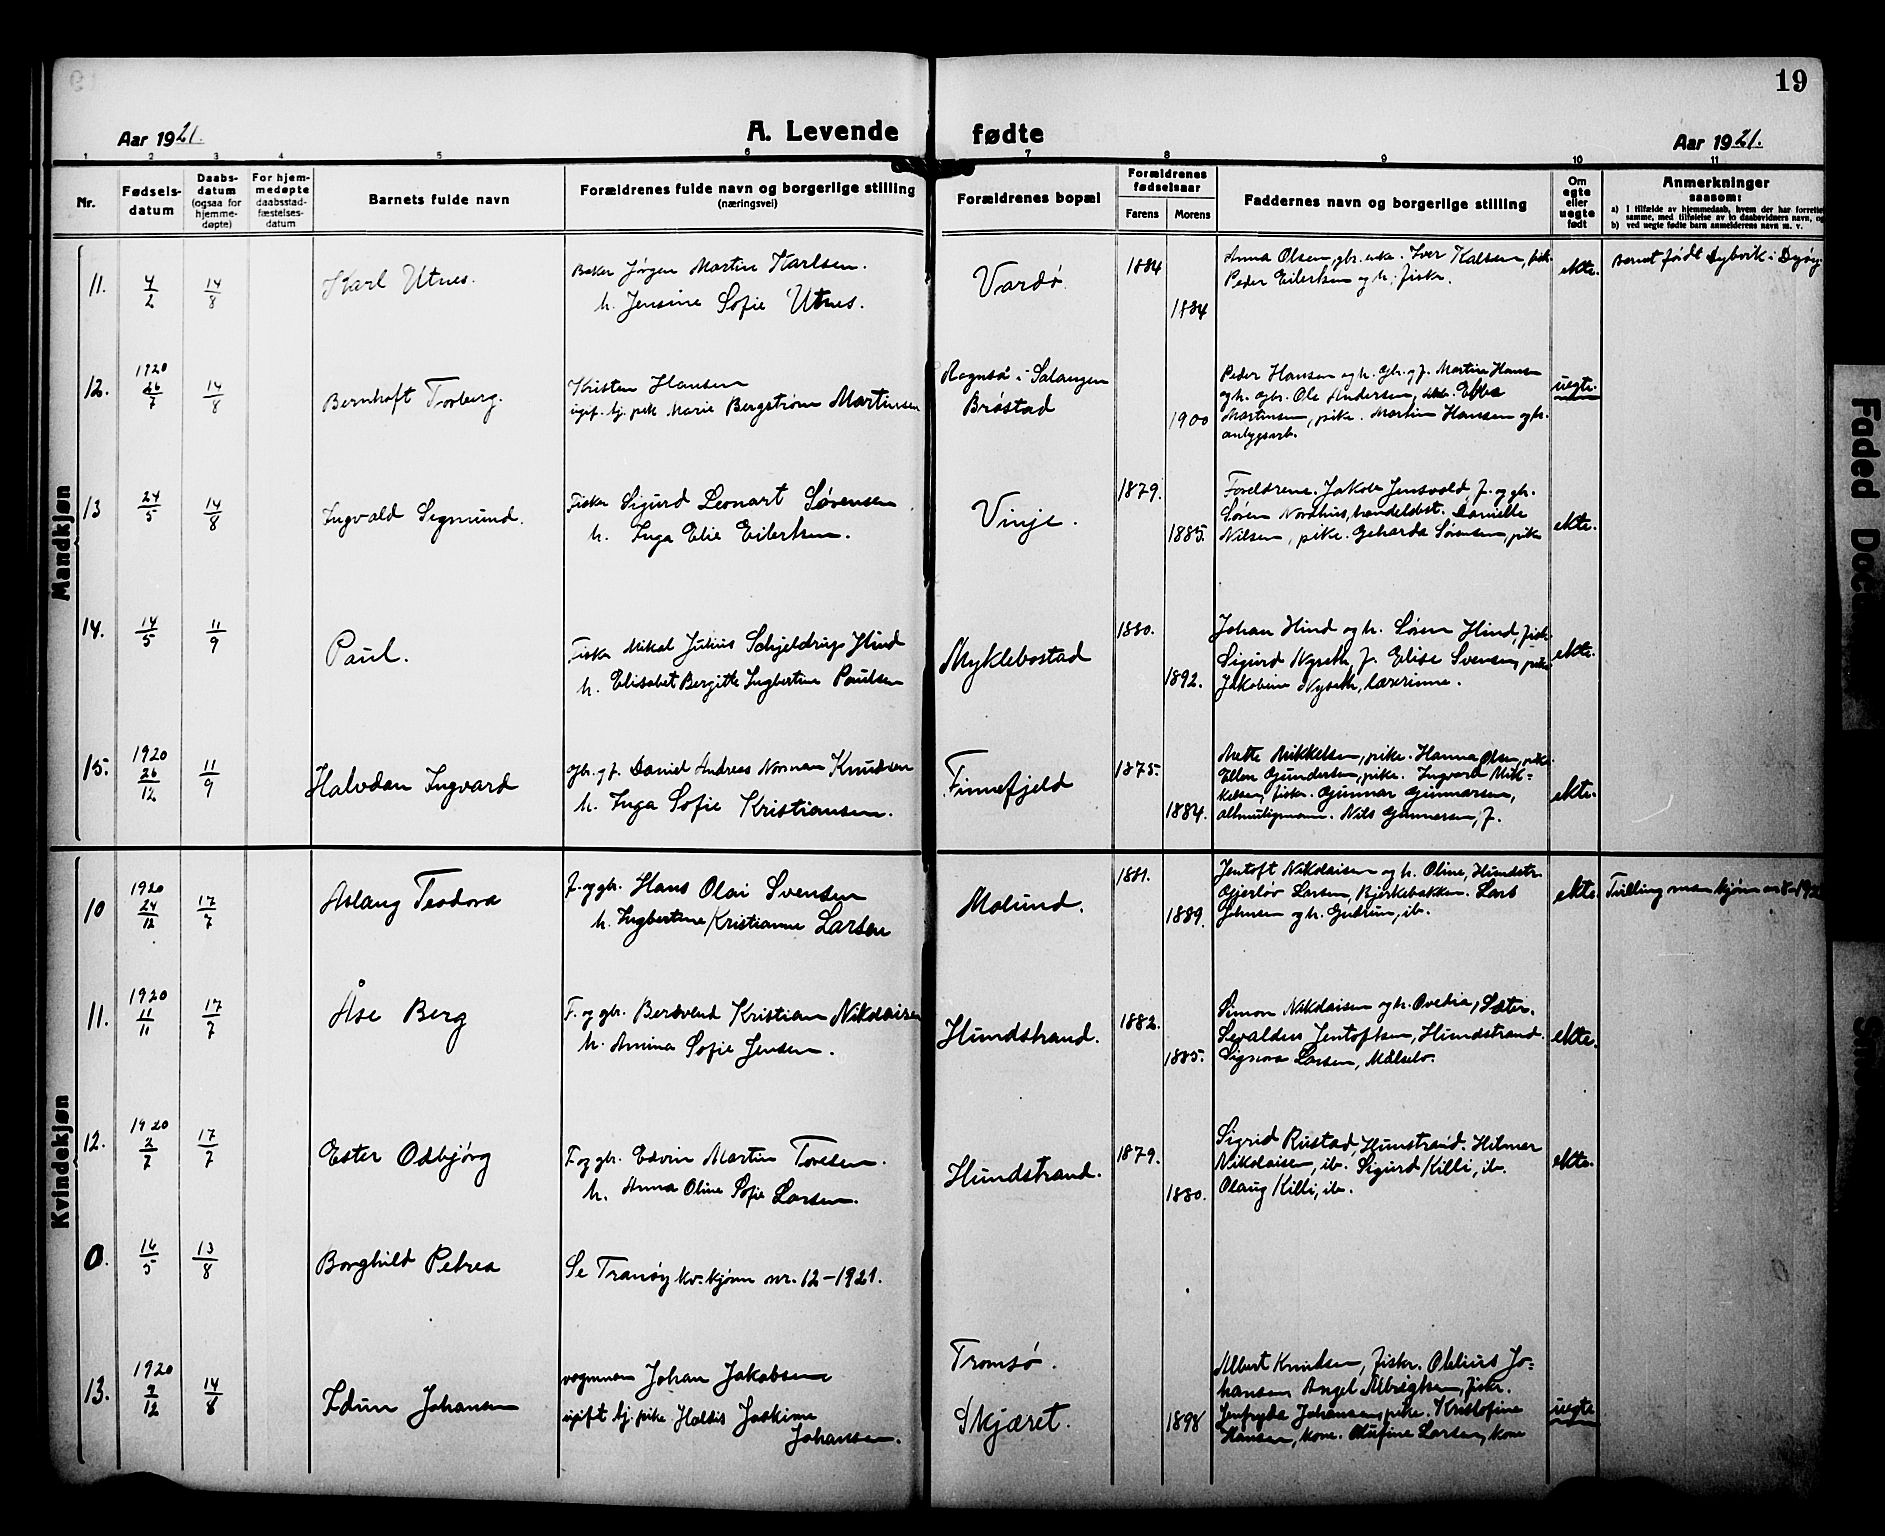 19
Aar 1921.
A. Levende fødte
Aar 1921.
1 2 3 4 5 6 7 8 9 10 11
Nr.
Fødsels-
datum
Daabs-
datum
(ogsaa for
hjemme-
døpte)
For hjem-
medøpte
daabsstad-
fæstelses-
datum
Barnets fulde navn
Forældrenes fulde navn og borgerlige stilling
(næringsvei)
Forældrenes bopæl
Forældrenes
fødselsaar
Farens Morens
Faddernes navn og borgerlige stilling
Om
egte
eller
uegte
født
Anmerkninger
saasom:
a) I tilfælde av hjemmedaab, hvem der har forrettet
samme, med tilføielse av to daabsvidners navn, og
b) ved uegte fødte barn anmelderens navn m. v.
Mandkjøn
11. 4/2 14/8 Karl Utnes.
Baker Jørgen Martin Karlsen.
h. Jensine Sofie Utnes.
Vardø.
1884
1884
Anna Olsen, gbr. enke. Iver Kalsen, fisk.
Peder Eilertsen og h. fisker.
ekte.
barnet født Dybvik i Dyrøy
12. 1920 26/7 14/8 Bernhoft Torberg.
Kristen Hansen
ugift tj. pike Marie Bergstrøm Martinsen
i Salangen
Brøstad
1900
Peder Hansen og h. gbr. g f. Martin Hansen
og h. gbr. Ole Andersen,
Martinsen, pike. Martin Hansen og h.
anlegsarb.
uegte.
13 24/5 14/8 Ingvald Sigmund.
Fisker Sigurd Leonart Sørensen
h. Inga Elie Eilertsen.
Vinje.
1879.
1885.
Foreldrene. Jakob Jensvold, f. og gbr.
Søren Nordhus, handelsbst. Danielle
Nilsen, pike. Geharda Sørensen, pike
ekte.
14. 14/5 11/9 Paul.
Fisker Mikal Julius Schjeldrup Hind
h. Elisabet Bergitte Ingbertine Paulsen
Myklebostad
1880.
1892.
Johan Hind og h. Søren Hind, fisk.
Sigurd Nyseth, f. Elise Svensen, pike
Jakobine Nyseth, lærerinne.
ekte.
15. 1920 26/12 11/9 Halvdan Ingvard
gbr. g f. Daniel Andreas Norman Knudsen
h. Inga Sofie Kristiansen.
Finnefjeld
1875.
1884.
Mette Mikkelsen, pike. Hanna Olsen, pike.
Ellen Gundersen, pike. Ingvard Mik-
kelsen, fisker. Gunnar Gunnarsen,
altmuligmann. Nils Gunnarsen, f.
ekte.
Kvindekjøn
10 1920 24/12 17/7 Aslaug Teodora
f. og gbr. Hans Olai Svensen
h. Ingbertine Kristianne Larsen
Molund.
1881.
1889.
Jentoft Nikolaisen og h. Oline, Hundstr.
Gjerløv Larsen, Bjerkebakken. Lars
Johnsen og h. Gudrun, ib.
ekte.
Tvilling mannkjønn 8-192
11. 1920 11/11 17/7 Åse Berg
F. og gbr. Bersvend Kristian Nikolaisen
h. Annina Sofie Jensen.
Hundstrand.
1882.
1885.
Simon Nikolaisen og h. Ovedia, Sæter.
Sevaldus Jentoftsen, Hundstrand.
Signora Larsen, Målselv.
ekte.
12. 1920 2/7 17/7 Ester Odbjörg
F. og gbr. Edvin Martin Toresen.
h. Anna Oline Sofie Larsen.
Hundstrand.
1879.
1880.
Sigrid Rustad, Hunstrand. Hilmar
Nikolaisen, ib. Sigurd Killi, ib.
Olaug Killi, ib.
ekte.
0. 16/5 13/8 Borghild Petrea
Se Tranøy kv.kjønn nr. 12-1921.
13. 1920 9/12 14/8 Idun Johansen
vognmann Johan Jakobsen
ugift tj. pike Haldis Joakime
Johansen.
Tromsø.
Skjæret.
1898
Albert Knudsen, fisker. Obelius Jo-
hansen, Angel Albrigtsen, fisker.
Jenfryda Johansen, pike. Kristofine
Hansen, kone. Olufine Larsen, kone
uegte
Faded Doc